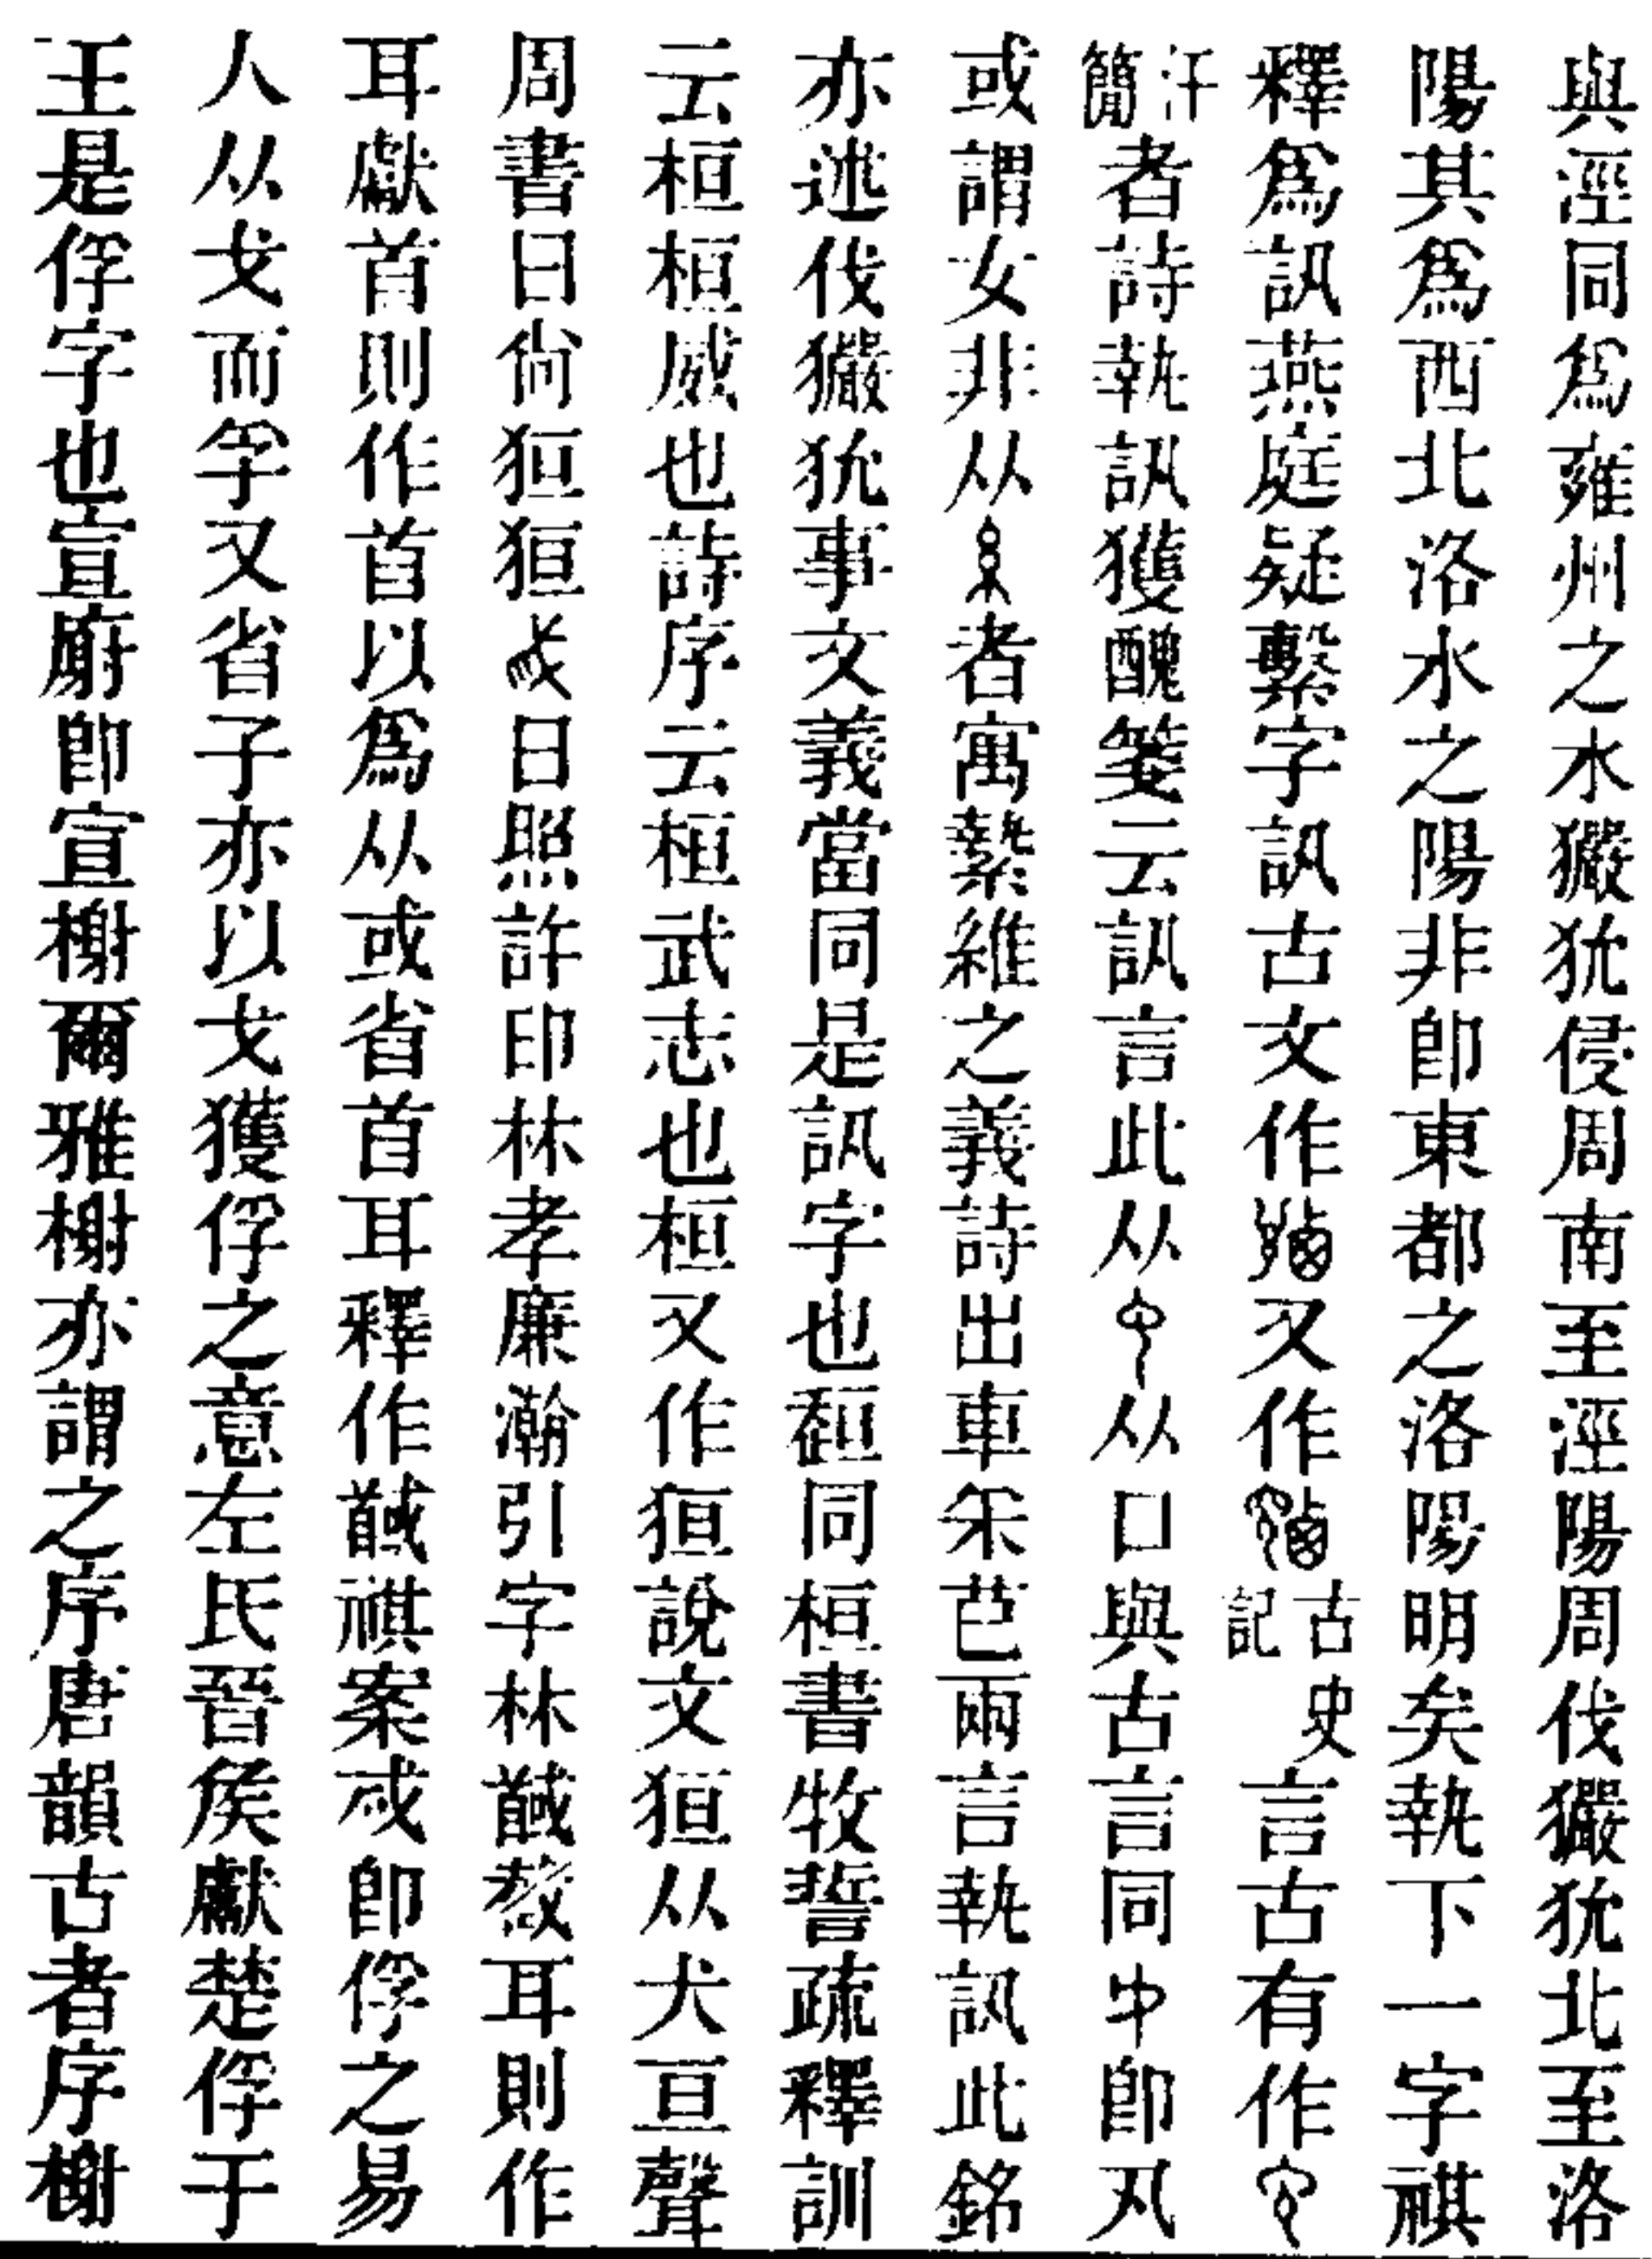 與涇同爲雍州之水玁狁侵周南至涇陽周伐玁狁北至洛
陽其爲西北洛水之陽非卽東都之洛陽明矣執下一字祺
釋爲訊燕庭疑繫字訊古文作又作古史記言古有作
汗簡者詩執訊獲醜箋云訊言此从从口與古言同卽丮
或謂女非从者寓縶維之義詩出車采芑兩言執訊此銘
亦述伐玁狁事文義當同是訊字也同桓書牧誓疏釋訓
云桓桓威也詩序云桓武志也桓又作狟說文狟从犬亘聲
周書曰尙狟狟曰照許印林孝廉瀚引字林馘截耳則作
耳獻首則作首以爲从或省首耳釋作馘祺案即俘之易
人从戈而孚又省子亦以戈獲俘之意左氏晉矦獻楚俘于
王是俘字也宣廚卽宣榭爾雅榭亦謂之序唐韻古者序榭